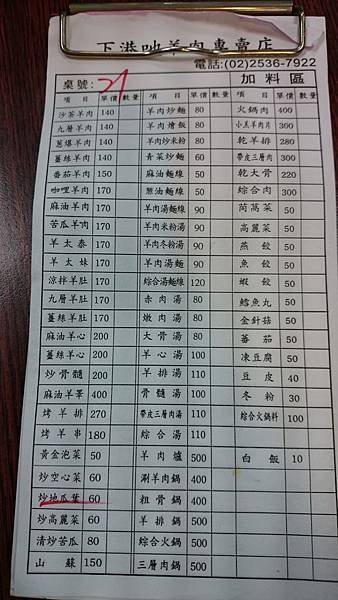 下港吔羊肉專賣店
電話:(02)2536-7922
桌號: 21 加料區
項目 單價 數量 項目 單價 數量 項目 單價 數量
沙茶羊肉 140 羊肉炒麵 80 火鍋肉 400
九層羊肉 140 羊肉燴飯 80 小羔羊肉片 300
蔥爆羊肉 140 羊肉炒米粉 80 乾羊排 280
薑絲羊肉 140 青菜炒麵 60 帶皮三層肉 300
番茄羊肉 150 麻油麵線 50 乾大骨 220
咖哩羊肉 170 蔥油麵線 50 綜合肉 300
麻油羊肉 170 羊肉湯麵線 90 茼萵菜 50
苦瓜羊肉 170 羊肉米粉湯 90 高麗菜 50
羊太泰 170 羊肉冬粉湯 90 燕餃 50
羊太妹 170 羊肉湯麵 90 魚餃 50
涼拌羊肚 170 綜合湯麵線 120 蝦餃 50
九層羊肚 170 赤肉湯 80 鱈魚丸 50
薑絲羊肚 170 嫩肉湯 80 金針菇 50
麻油羊心 200 大骨湯 80 番茄 50
薑絲羊心 200 羊心湯 100 凍豆腐 50
炒骨髓 200 羊排湯 110 豆皮 40
麻油羊睪 400 骨髓湯 100 冬粉 30
烤羊排 270 帶皮三層肉湯 110 綜合火鍋料 100
烤羊串 180 綜合湯 110
黃金泡菜 50 羊肉爐 500 白飯 10
炒空心菜 60 涮羊肉鍋 400
炒地瓜葉 60 粗骨鍋 400
炒高麗菜 60 羊排鍋 500
清炒苦瓜 80 綜合火鍋 500
山蘇 150 三層肉鍋 500